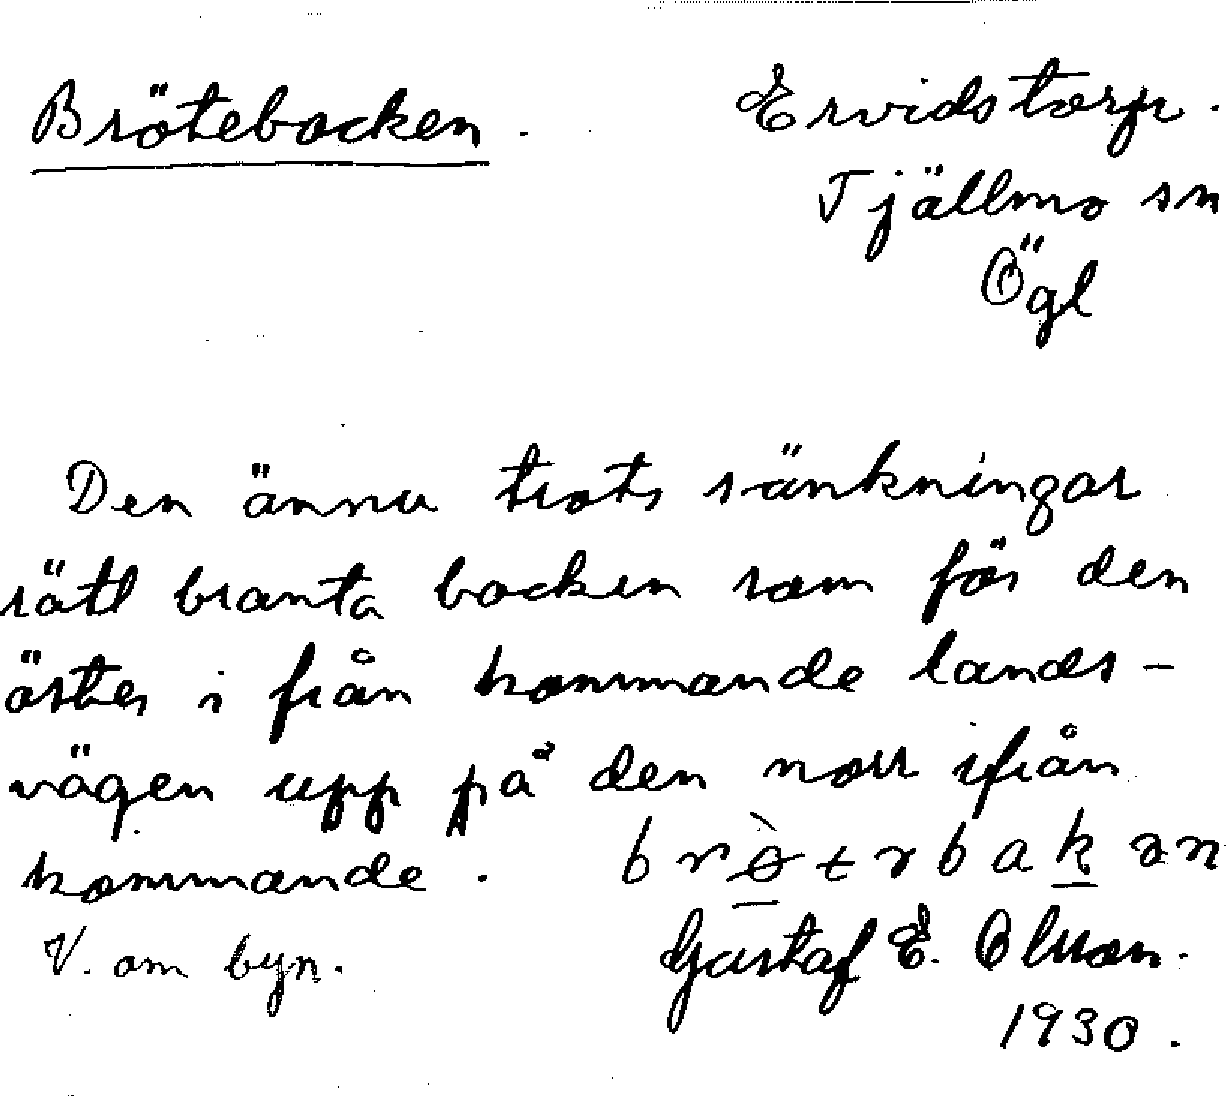 Brötebacken. Ervidstorp.
Tjällmo sn
Ögl
Den ännu trots sänkningar
rätt branta backen som för den
öster i från kommande lands-
vägen upp på den norr ifrån
kommande.
V. om byn. Gustaf E. Olsson.
1930.